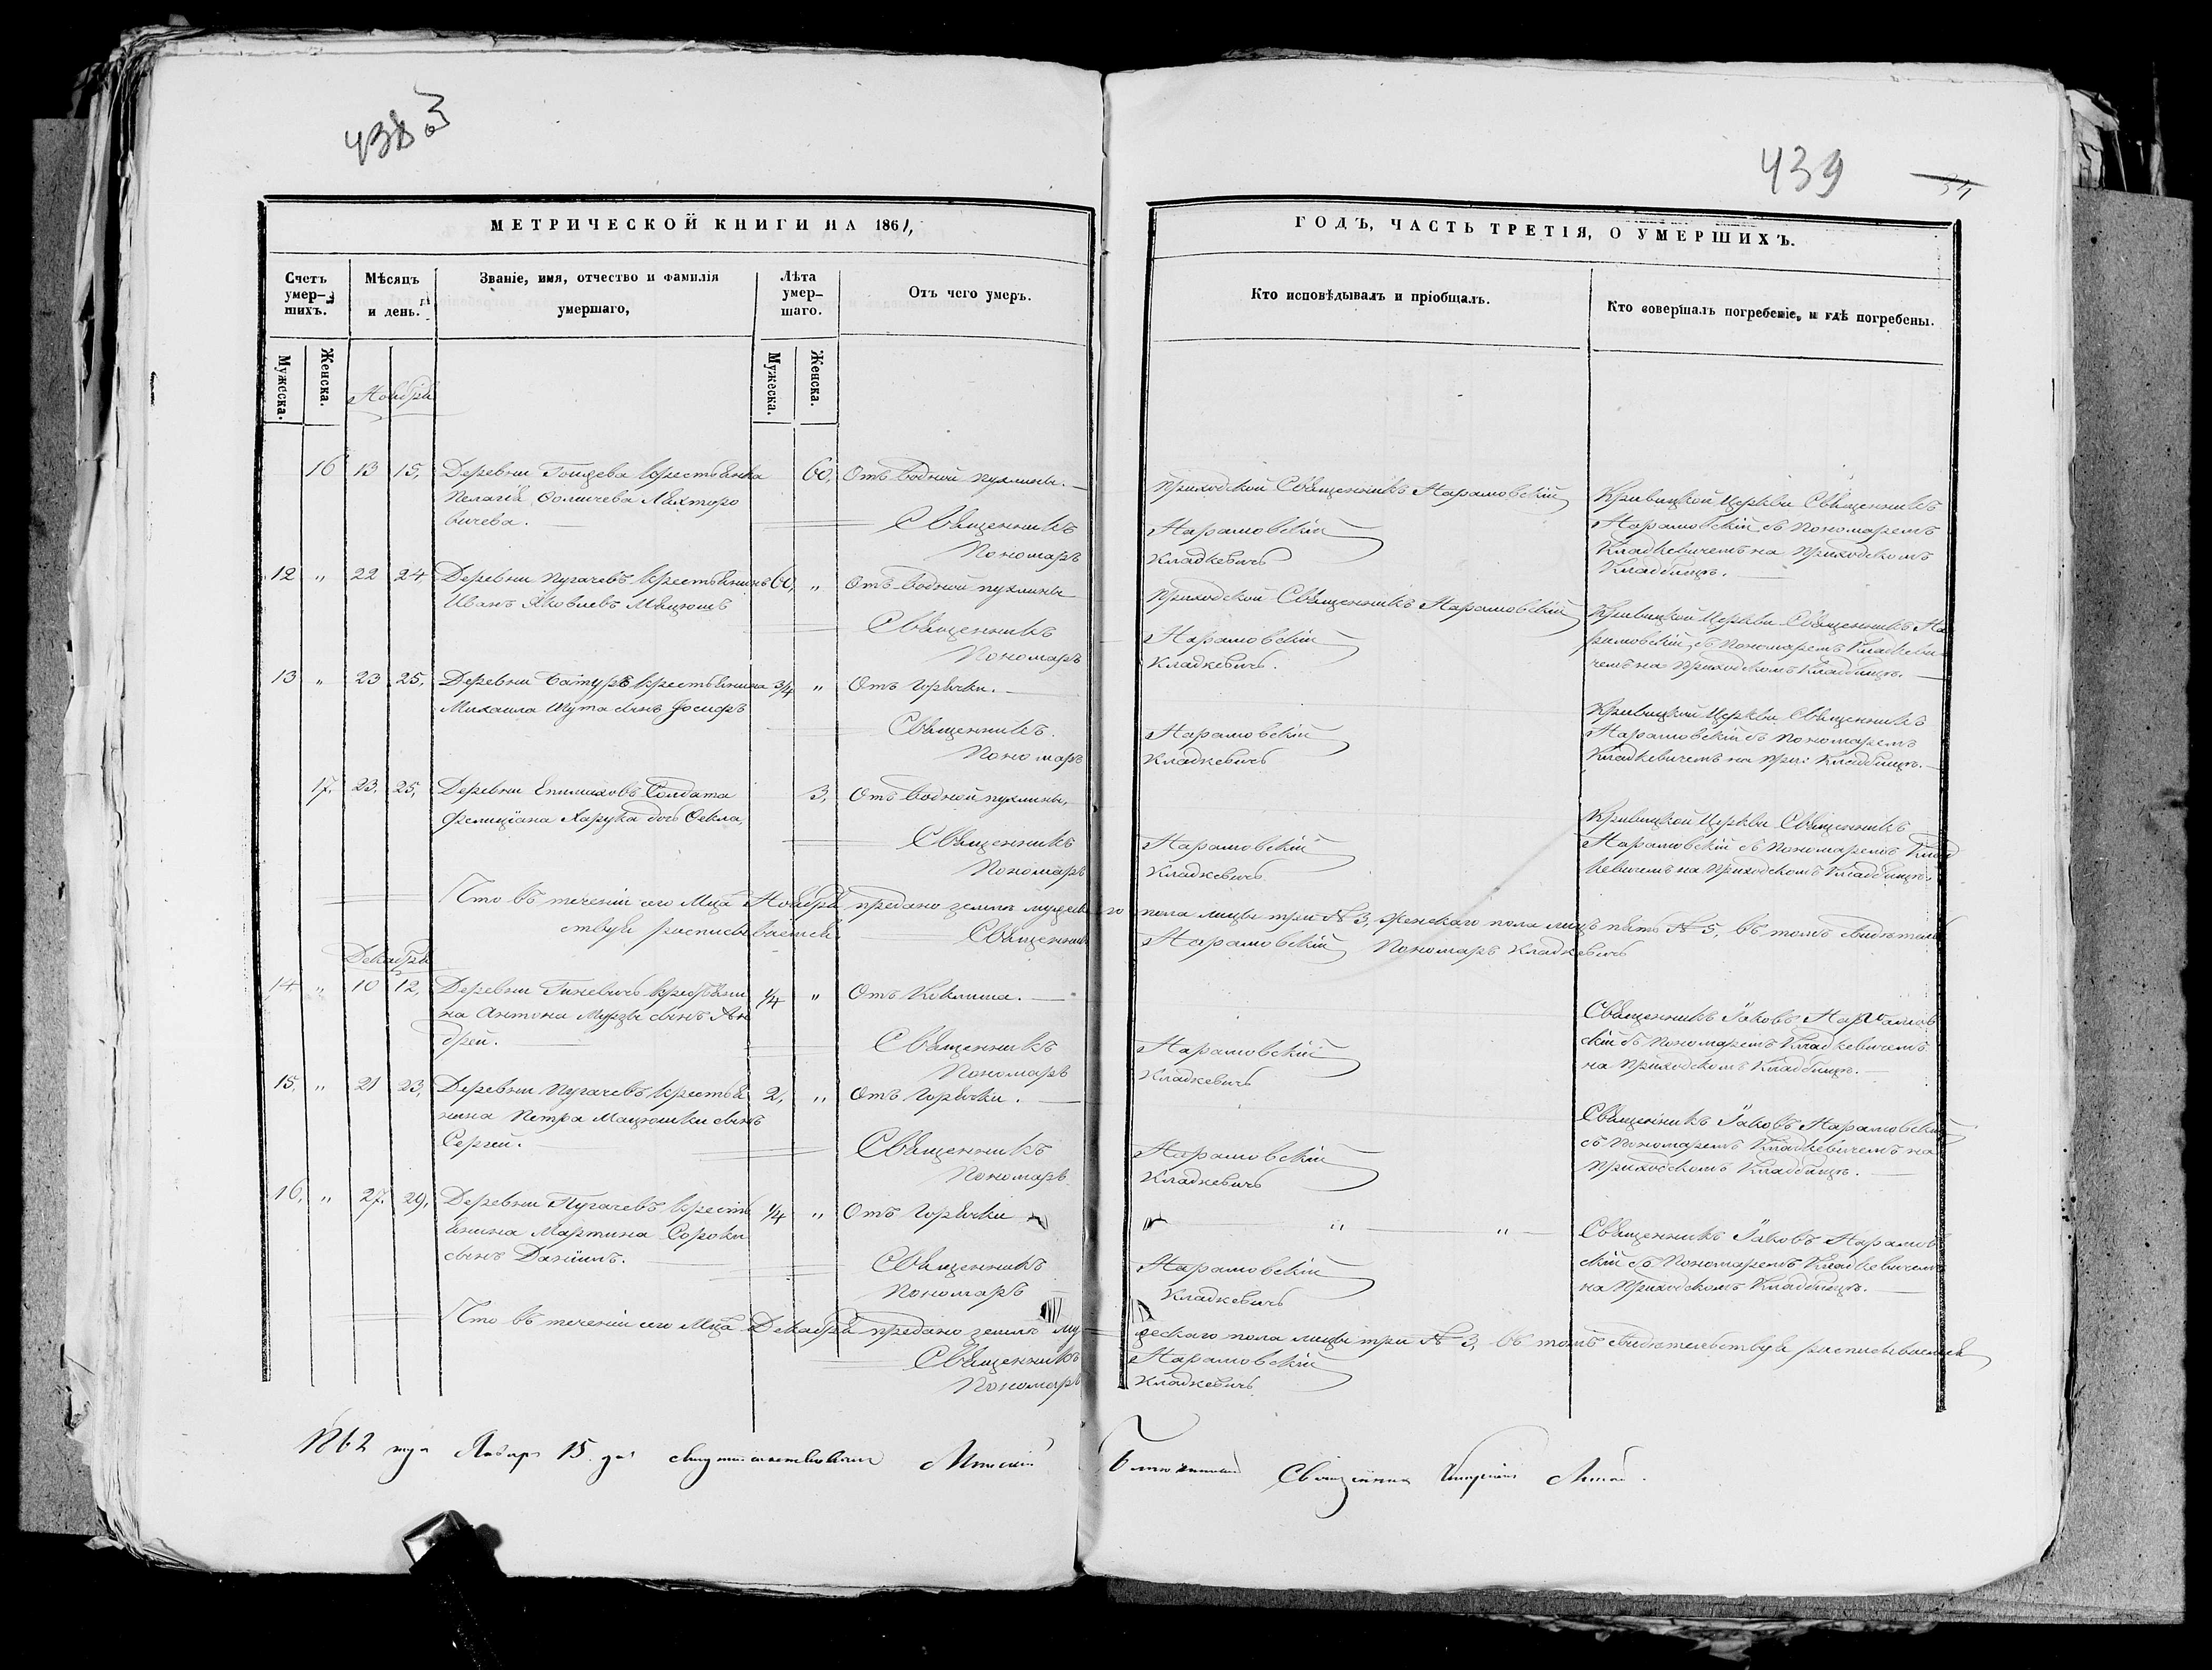 438
439
МЕТРИЧЕСКОЙ КНИГИ НА 1861,
ГОДЪ, ЧАСТЬ ТРЕТІЯ, О УМЕРШИХЪ.
Счетъ умер-шихъ.
Мѣсяцъ и день.
Званіе, имя, отчество и фамилія умершаго,
Лѣта умер-шаго.
Отъ чего умеръ.
Кто исповѣдывалъ и пріобщалъ.
Кто совершалъ погребеніе, и гдѣ погребены.
Мужеска. Женска.
Мужеска. Женска.
Ноября
16 13 15, Деревни крестьянка 60, Отъ водной пухлины.
Приходскій Священникъ Нарановскій
Кривицкой Церкви Священникъ
Пелагія
вичева.
Священникъ Нарановскій
Нарановскій съ Пономаремъ
Пономарь Кладкевичъ
Кладкевичемъ на Приходскомъ
Кладбищѣ.
12 " 22 24 Деревни Пугачевъ крестьянинъ 60, " Отъ водной пухлины
Приходскій Священникъ Нарановскій
Иванъ Яковлевъ Мацюшъ
Кривицкой Церкви Священникъ На
Священникъ Нарановскій
рановскій съ Пономаремъ Кладкеви
Пономарь Кладкевичъ.
чемъ на Приходскомъ Кладбищѣ.
13 " 23 25, Деревни крестьянина 3/4 " Отъ горячки.
Михаила Шута сынъ Іосифъ
Кривицкой Церкви Священникъ
Священникъ Нарановскій
Нарановскій съ Пономаремъ
Пономарь Кладкевичъ
Кладкевичемъ на при: Кладбищѣ.
17, 23, 25, Деревни Епимаховъ Солдата 3, Отъ водной пухлины,
Фелиціана Харука дочь Ѳекла,
Кривицкой Церкви Священникъ
Священникъ Нарановскій
Нарановскій съ Пономаремъ Клад
Пономарь Кладкевичъ
кевичемъ на Приходскомъ Кладбищѣ.
Что въ теченіи сего Мца Ноября предано землѣ мужескаго пола лицъ три № 3, женскаго пола лицъ пять № 5, въ томъ свидѣтель
ствуя росписываемся Священникъ Нарановскій Пономарь Кладкевичъ
Декабря
14 " 10 12, Деревни крестьяни 1/4 " Отъ Коклюша.
на Антона Мурзы сынъ Ан
Священникъ Іаковъ Наранов
дрей.
Священникъ Нарановскій
скій съ Пономаремъ Кладкевичемъ
Пономарь Кладкевичъ
на Приходскомъ Кладбищѣ.
15, " 21 23, Деревни Пугачевъ крестья 2, " Отъ горячки.
нина Петра Мацюшки сынъ
Священникъ Іаковъ Нарановскій
Сергей.
Священникъ Нарановскій
съ Пономаремъ Кладкевичемъ на
Пономарь Кладкевичъ
Приходскомъ Кладбищѣ.
16, " 27, 29, Деревни Пугачевъ кресть 1/4 " Отъ горячки " "
янина Мартина Сороки
Священникъ Іаковъ Наранов
сынъ Даніилъ.
Священникъ Нарановскій
скій съ Пономаремъ Кладкевичемъ
Пономарь Кладкевичъ
на Приходскомъ Кладбищѣ.
Что въ теченіи сего Мца Декабря предано землѣ мужескаго пола лицъ три № 3, въ томъ свидѣтельствуя росписываемся
Священникъ Нарановскій
Пономарь Кладкевичъ
1862 года Января 15 дня свидѣтельствовалъ Благочинный Священникъ